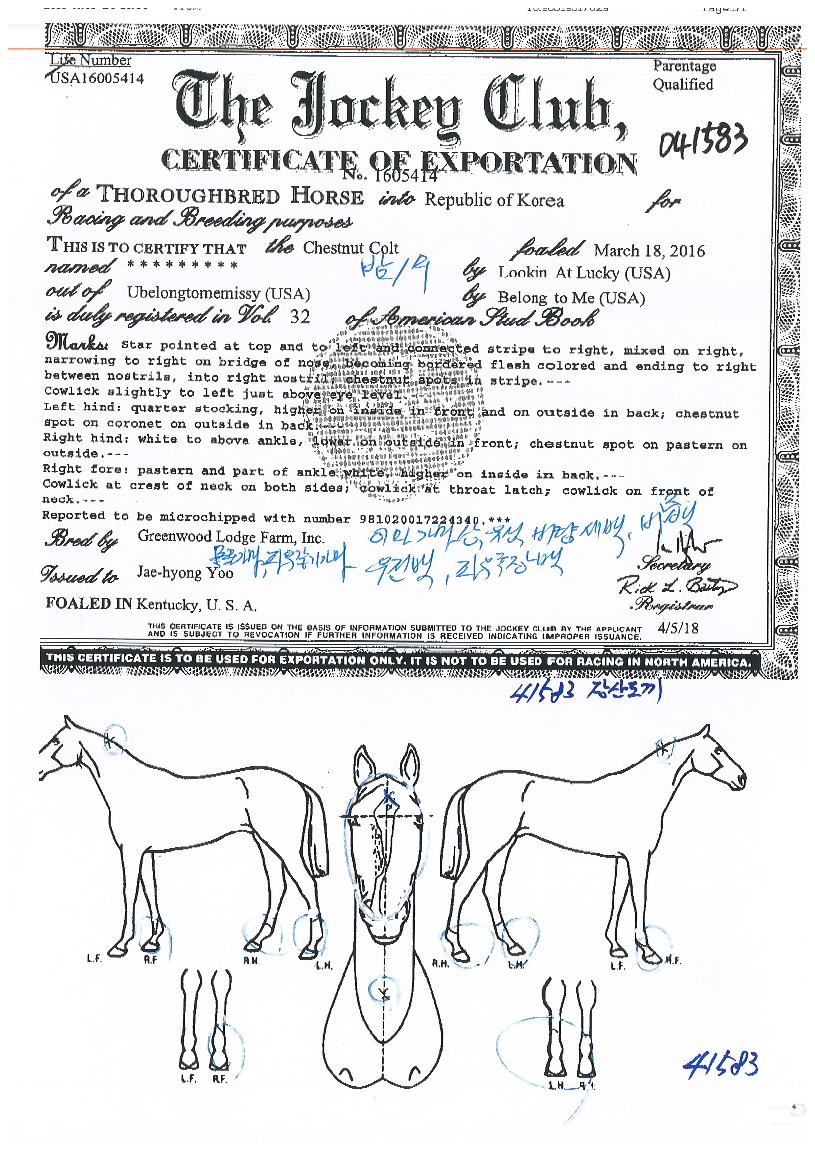 Life Number
USA16005414
Parentage
Qualified
The Jockey Club,
041583
CERTIFICATE OF EXPORTATION
No. 1605414
of a THOROUGHBRED HORSE into Republic of Korea for
Racing and Breeding purposes
THIS IS TO CERTIFY THAT the Chestnut Colt foaled March 18, 2016
named * * * * * * * * * 밤/수 by Lookin At Lucky (USA)
out of Ubelongtomemissy (USA) by Belong to Me (USA)
is duly registered in Vol. 32 of American Stud Book
Marks: Star pointed at top and to left and connected stripe to right, mixed on right,
narrowing to right on bridge of nose, becoming bordered flesh colored and ending to right
between nostrils, into right nostril; chestnut spots in stripe.---
Cowlick slightly to left just above eye level.---
Left hind: quarter stocking, higher on inside in front and on outside in back; chestnut
spot on coronet on outside in back.---
Right hind: white to above ankle, lower on outside in front; chestnut spot on pastern on
outside.---
Right fore: pastern and part of ankle white, higher on inside in back.---
Cowlick at crest of neck on both sides; cowlick at throat latch; cowlick on front of
neck.---
Reported to be microchipped with number 981020017224340.***
Bred by Greenwood Lodge Farm, Inc.
Issued to Jae-hyong Yoo
Secretary
Rick L. Bailey
Registrar
FOALED IN Kentucky, U. S. A.
THIS CERTIFICATE IS ISSUED ON THE BASIS OF INFORMATION SUBMITTED TO THE JOCKEY CLUB BY THE APPLICANT
AND IS SUBJECT TO REVOCATION IF FURTHER INFORMATION IS RECEIVED INDICATING IMPROPER ISSUANCE.
4/5/18
THIS CERTIFICATE IS TO BE USED FOR EXPORTATION ONLY. IT IS NOT TO BE USED FOR RACING IN NORTH AMERICA.
41583 장산토끼
L.F. R.F. R.H. L.H. R.H. L.H. L.F. R.F.
L.F. R.F. L.H. R.H.
41583